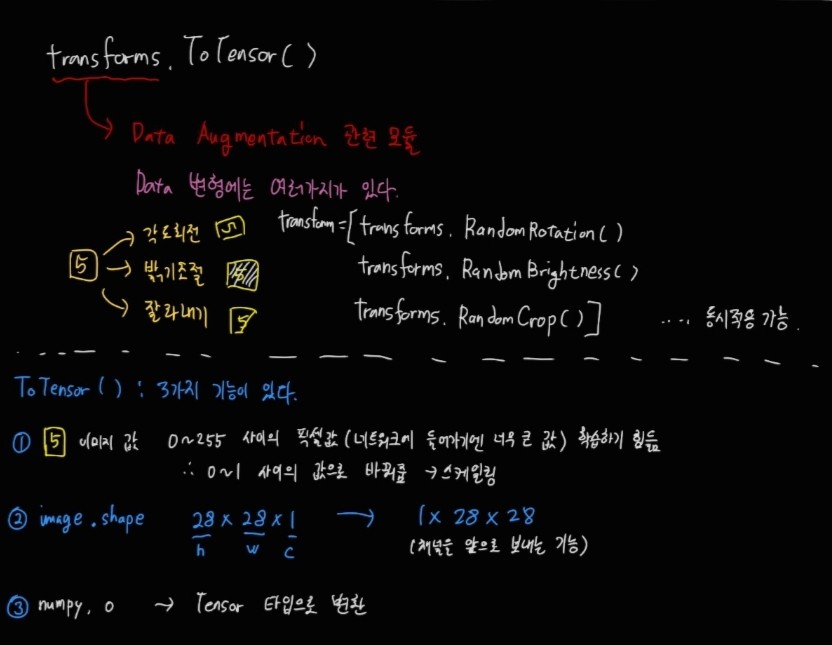 transforms. ToTensor()
Data Augmentation 관련 모듈
Data 변형에는 여러가지가 있다.
5
각도회전 5
밝기조절 5
잘라내기 5
transform=[transforms. RandomRotation()
transforms. RandomBrightness()
transforms. RandomCrop()] ..... 동시적용 가능.
ToTensor() : 3가지 기능이 있다.
① 5 이미지 값 0~255 사이의 픽셀값(네트워크에 들어가기엔 너무 큰 값) 학습하기 힘듦
∴ 0~1 사이의 값으로 바꿔줌 → 스케일링
② image.shape 28 x 28 x 1 → 1 x 28 x 28
h w c (채널을 앞으로 보내는 기능)
③ numpy, o → Tensor 타입으로 변환